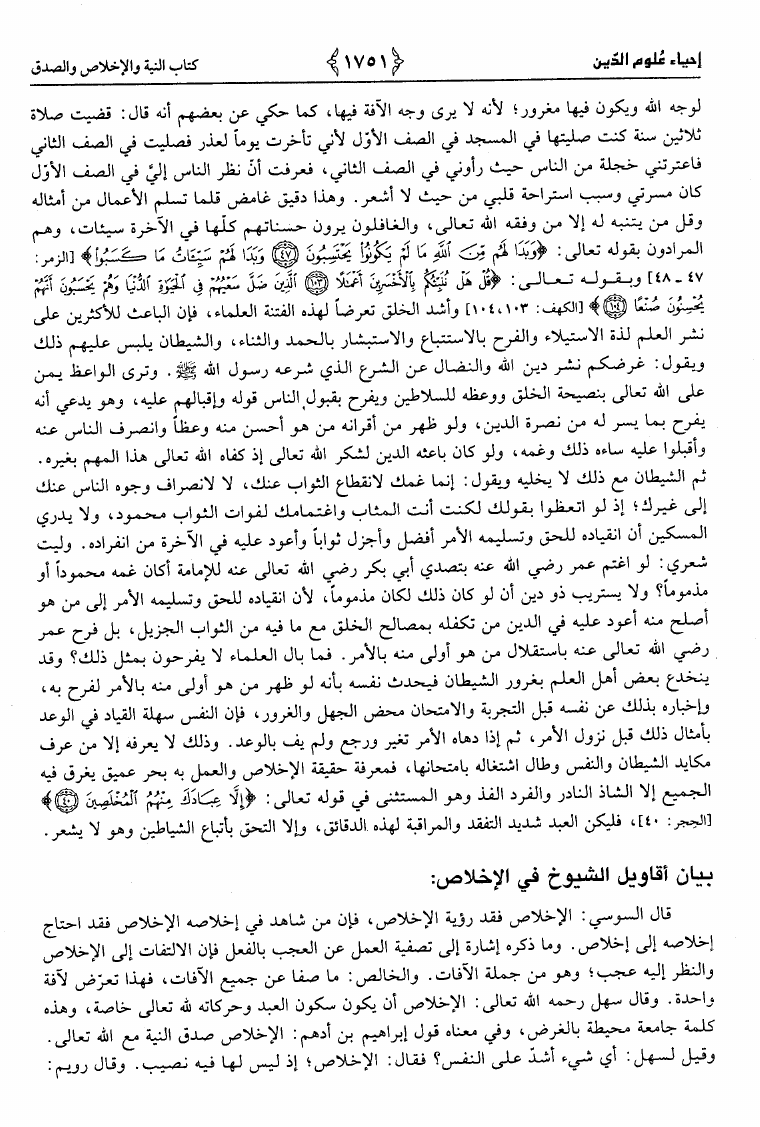 إحياء عُلوم الدّين ﴿١٧٥١﴾ كتاب النية والإخلاص والصدق
لوجه الله ويكون فيها مغرور؛ لأنه لا يرى وجه الآفة فيها، كما حكي عن بعضهم أنه قال: قضيت صلاة
ثلاثين سنة كنت صليتها في المسجد في الصف الأوّل لأني تأخرت يوماً لعذر فصليت في الصف الثاني
فاعترتني خجلة من الناس حيث رأوني في الصف الثاني، فعرفت أنّ نظر الناس إليَّ في الصف الأوّل
كان مسرتي وسبب استراحة قلبي من حيث لا أشعر. وهذا دقيق غامض قلما تسلم الأعمال من أمثاله
وقل من يتنبه له إلا من وفقه الله تعالى، والغافلون يرون حسناتهم كلّها في الآخرة سيئات، وهم
المرادون بقوله تعالى: ﴿وَبَدَا لَهُم مِّنَ ٱللَّهِ مَا لَمْ يَكُونُوا۟ يَحْتَسِبُونَ ﴿٤٧﴾ وَبَدَا لَهُمْ سَيِّـَٔاتُ مَا كَسَبُوا۟﴾ [الزمر:
٤٧ ـ ٤٨] وبقوله تعالى: ﴿قُلْ هَلْ نُنَبِّئُكُم بِٱلْأَخْسَرِينَ أَعْمَٰلًا ﴿١٠٣﴾ ٱلَّذِينَ ضَلَّ سَعْيُهُمْ فِى ٱلْحَيَوٰةِ ٱلدُّنْيَا وَهُمْ يَحْسَبُونَ أَنَّهُمْ
يُحْسِنُونَ صُنْعًا ﴿١٠٤﴾﴾ [الكهف: ١٠٣، ١٠٤] وأشد الخلق تعرضاً لهذه الفتنة العلماء، فإن الباعث للأكثرين على
نشر العلم لذة الاستيلاء والفرح بالاستتباع والاستبشار بالحمد والثناء، والشيطان يلبس عليهم ذلك
ويقول: غرضكم نشر دين الله والنضال عن الشرع الذي شرعه رسول الله ﷺ. وترى الواعظ يمن
على الله تعالى بنصيحة الخلق ووعظه للسلاطين ويفرح بقبول الناس قوله وإقبالهم عليه، وهو يدعي أنه
يفرح بما يسر له من نصرة الدين، ولو ظهر من أقرانه من هو أحسن منه وعظاً وانصرف الناس عنه
وأقبلوا عليه ساءه ذلك وغمه، ولو كان باعثه الدين لشكر الله تعالى إذ كفاه الله تعالى هذا المهم بغيره.
ثم الشيطان مع ذلك لا يخليه ويقول: إنما غمك لانقطاع الثواب عنك، لا لانصراف وجوه الناس عنك
إلى غيرك؛ إذ لو اتعظوا بقولك لكنت أنت المثاب واغتمامك لفوات الثواب محمود، ولا يدري
المسكين أن انقياده للحق وتسليمه الأمر أفضل وأجزل ثواباً وأعود عليه في الآخرة من انفراده. وليت
شعري: لو اغتم عمر رضي الله عنه بتصدي أبي بكر رضي الله تعالى عنه للإمامة أكان غمه محموداً أو
مذموماً؟ ولا يستريب ذو دين أن لو كان ذلك لكان مذموماً، لأن انقياده للحق وتسليمه الأمر إلى من هو
أصلح منه أعود عليه في الدين من تكفله بمصالح الخلق مع ما فيه من الثواب الجزيل، بل فرح عمر
رضي الله تعالى عنه باستقلال من هو أولى منه بالأمر. فما بال العلماء لا يفرحون بمثل ذلك؟ وقد
ينخدع بعض أهل العلم بغرور الشيطان فيحدث نفسه بأنه لو ظهر من هو أولى منه بالأمر لفرح به،
وإخباره بذلك عن نفسه قبل التجربة والامتحان محض الجهل والغرور، فإن النفس سهلة القياد في الوعد
بأمثال ذلك قبل نزول الأمر، ثم إذا دهاه الأمر تغير ورجع ولم يف بالوعد. وذلك لا يعرفه إلا من عرف
مكايد الشيطان والنفس وطال اشتغاله بامتحانها، فمعرفة حقيقة الإخلاص والعمل به بحر عميق يغرق فيه
الجميع إلا الشاذ النادر والفرد الفذ وهو المستثنى في قوله تعالى: ﴿إِلَّا عِبَادَكَ مِنْهُمُ ٱلْمُخْلَصِينَ ﴿٤٠﴾﴾
[الحِجر: ٤٠]، فليكن العبد شديد التفقد والمراقبة لهذه الدقائق، وإلا التحق بأتباع الشياطين وهو لا يشعر.
بيان أقاويل الشيوخ في الإخلاص:
قال السوسي: الإخلاص فقد رؤية الإخلاص، فإن من شاهد في إخلاصه الإخلاص فقد احتاج
إخلاصه إلى إخلاص. وما ذكره إشارة إلى تصفية العمل عن العجب بالفعل فإن الالتفات إلى الإخلاص
والنظر إليه عجب؛ وهو من جملة الآفات. والخالص: ما صفا عن جميع الآفات، فهذا تعرّض لآفة
واحدة. وقال سهل رحمه الله تعالى: الإخلاص أن يكون سكون العبد وحركاته لله تعالى خاصة، وهذه
كلمة جامعة محيطة بالغرض، وفي معناه قول إبراهيم بن أدهم: الإخلاص صدق النية مع الله تعالى.
وقيل لسهل: أي شيء أشدّ على النفس؟ فقال: الإخلاص؛ إذ ليس لها فيه نصيب. وقال رويم: